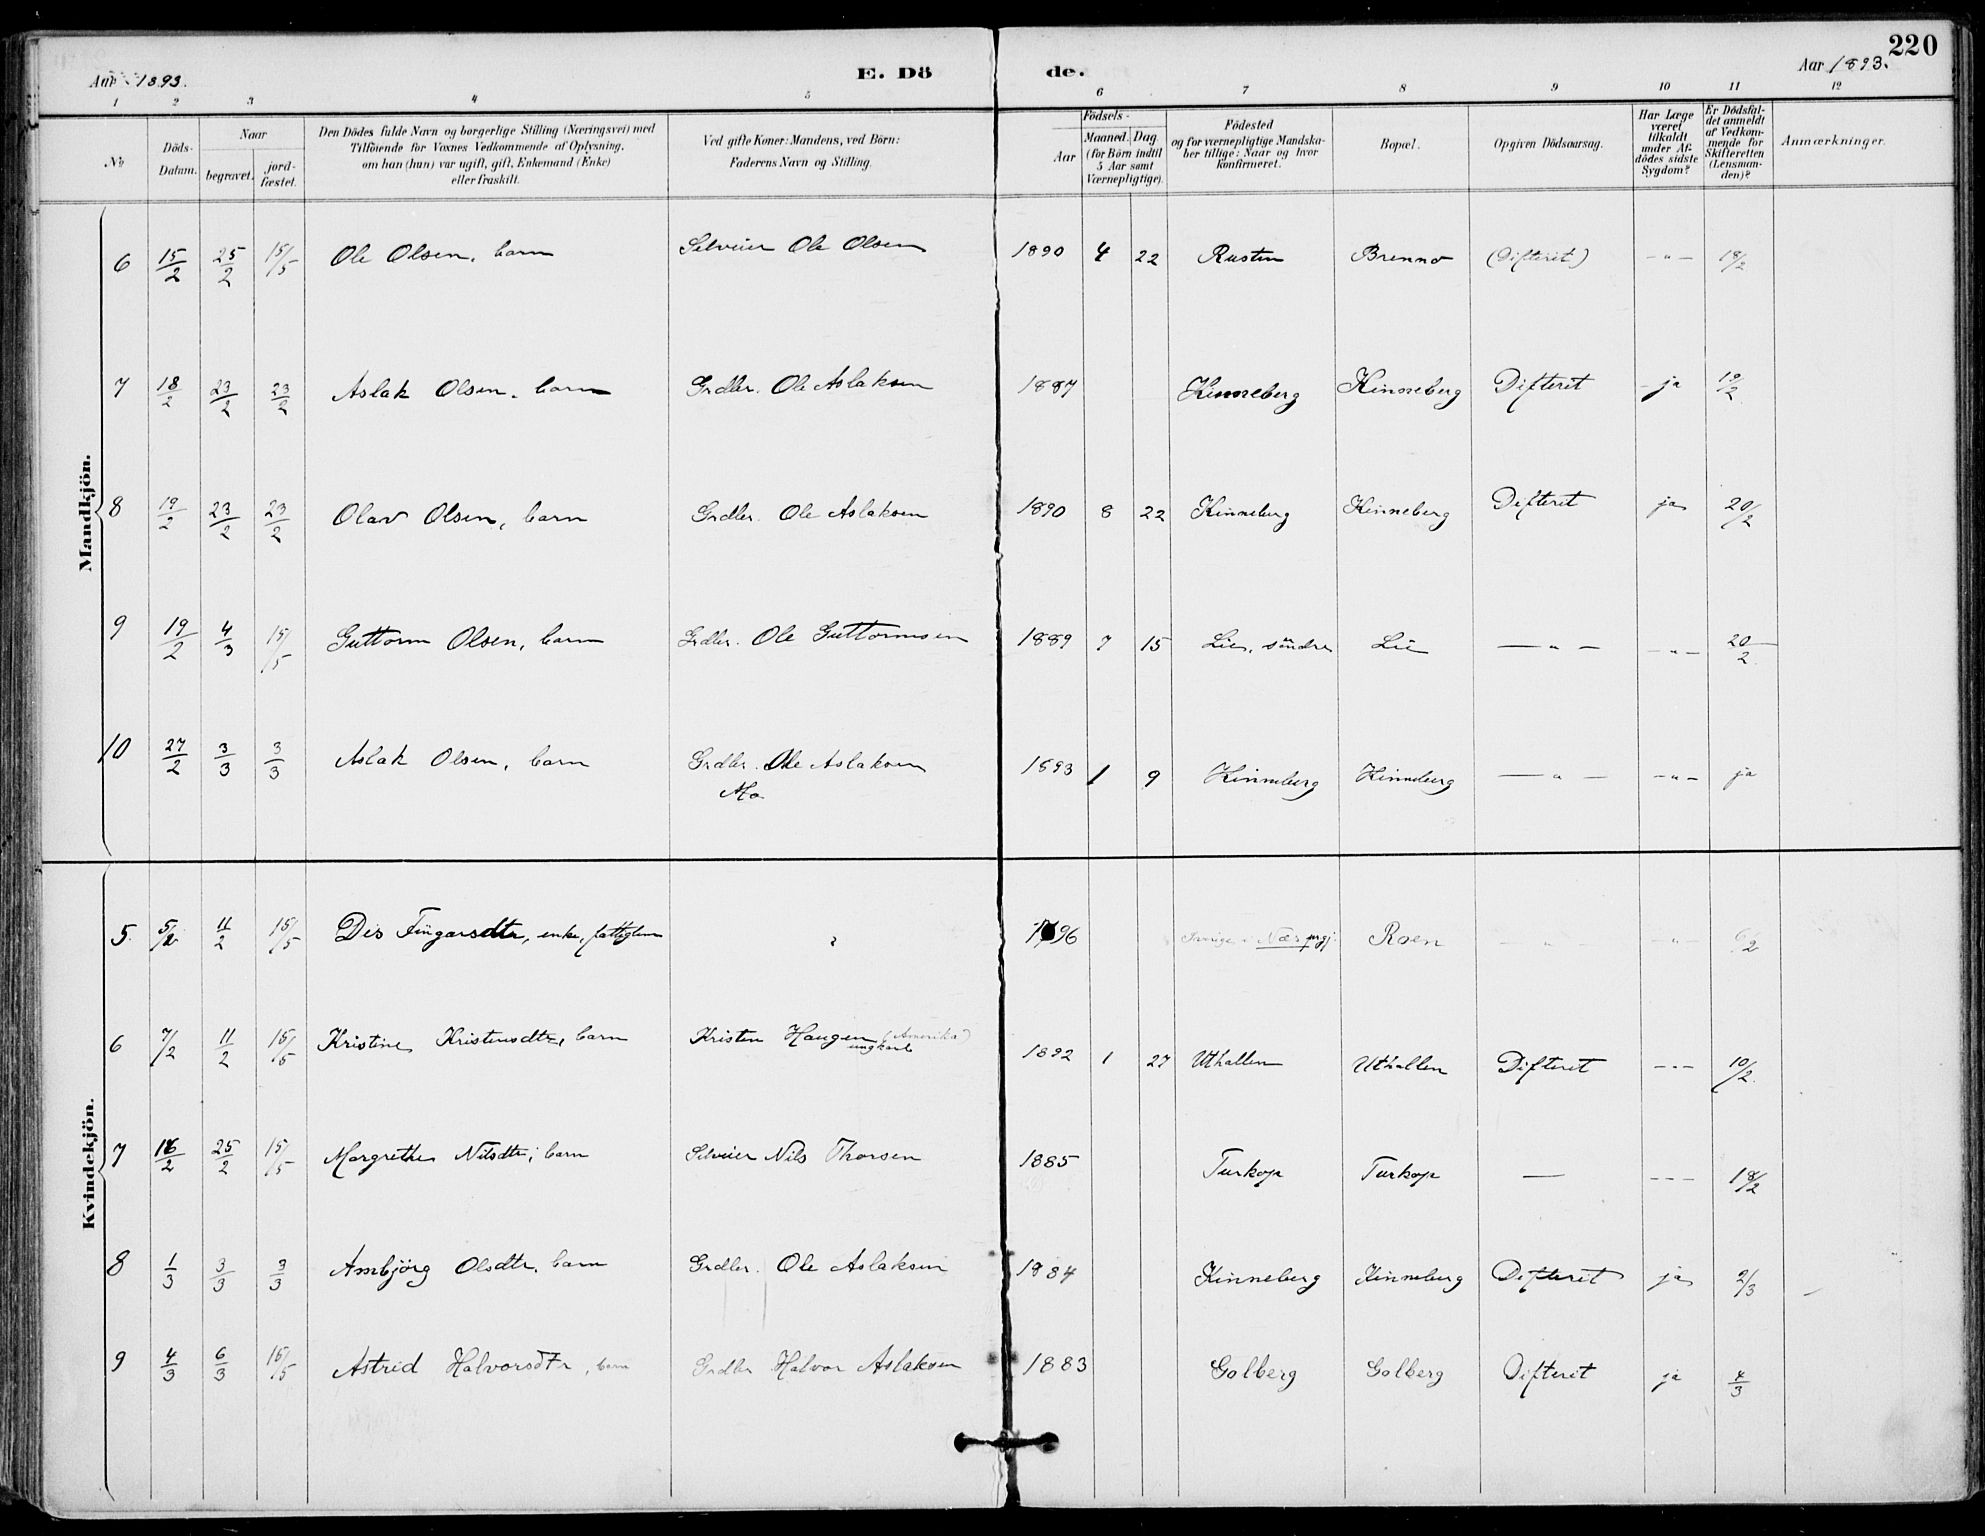 220
Aar 1893.
E. Dö de.
Aar 1893.
1 2 3 4 5 6 7 8 9 10 11 12
No
Döds-Datum.
Naar
begravet.
jord-fæstet.
Den Dödes fulde Navn og borgerlige Stilling (Næringsvei) med
Tilföiende for Voxnes Vedkommende af Oplysning,
om han (hun) var ugift, gift, Enkemand (Enke)
eller fraskilt.
Ved gifte Koner: Mandens, ved Börn:
Faderens Navn og Stilling.
Födsels-
Aar
Maaned. Dag
(for Börn indtil
5 Aar samt
Værnepligtige).
Födested
og for værnepligtige Mandska-
ber tillige: Naar og hvor
konfirmeret.
Bopæl.
Opgiven Dödsaarsag.
Har Læge
været
tilkaldt
under Af-
dödes sidste
Sygdom?
Er Dödsfal-
det anmeldt
af Vedkom-
mende for
Skifteretten
(Lensman-
den)?
Anmærkninger.
Mandkjön.
6 15/2 25/2 15/5 Ole Olsen, barn Selveier Ole Olsen 1890 4 22 Rusten Brenno (Difterit) - " - 18/2
7 18/2 23/2 23/2 Aslak Olsen, barn Grdbr. Ole Aslaksen 1887 Kinneberg Kinneberg Difterit ja 19/2
8 19/2 23/2 23/2 Olav Olsen, barn Grdbr. Ole Aslaksen 1890 8 22 Kinneberg Kinneberg Difterit ja 20/2
9 19/2 4/3 15/5 Guttorm Olsen, barn Grdbr. Ole Guttormsen 1889 7 15 Lie, söndre Lie - " - - " - 20/2
10 27/2 3/3 3/3 Aslak Olsen, barn Grdbr. Ole Aslaksen 1893 1 9 Kinneberg Kinneberg - " - - " - ja
Mo
Kvindekjön.
5 5/2 11/2 15/5 Dis Fingarsdtr, enke, fattiglem 96 Næs prgj. Roen - " - - " - 6/2
6 7/2 11/2 15/5 Kristine Kristensdtr, barn Kristen Haugen (Amerika) 1892 1 27 Uthallen Uthallen Difterit - " - 10/2
ungkarl
7 16/2 25/2 15/5 Margrethe Nilsdtr, barn Selveier Nils Thorsen 1885 Turkop Turkop — - - - 18/2
8 1/3 3/3 3/3 Ambjörg Olsdtr, barn Grdbr. Ole Aslaksen 1884 Kinneberg Kinneberg Difterit ja 2/3
9 4/3 6/3 15/5 Astrid Halvorsdtr, barn Grdbr Halvor Aslaksen 1883 Golberg Golberg Difterit ja 4/3